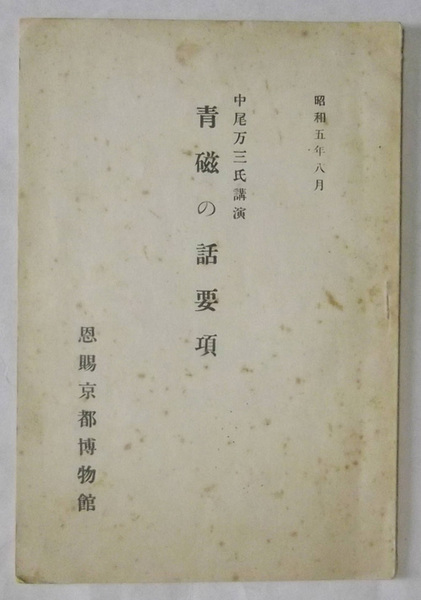 昭和五年八月
中尾万三氏講演
青磁の話要項
恩賜京都博物館